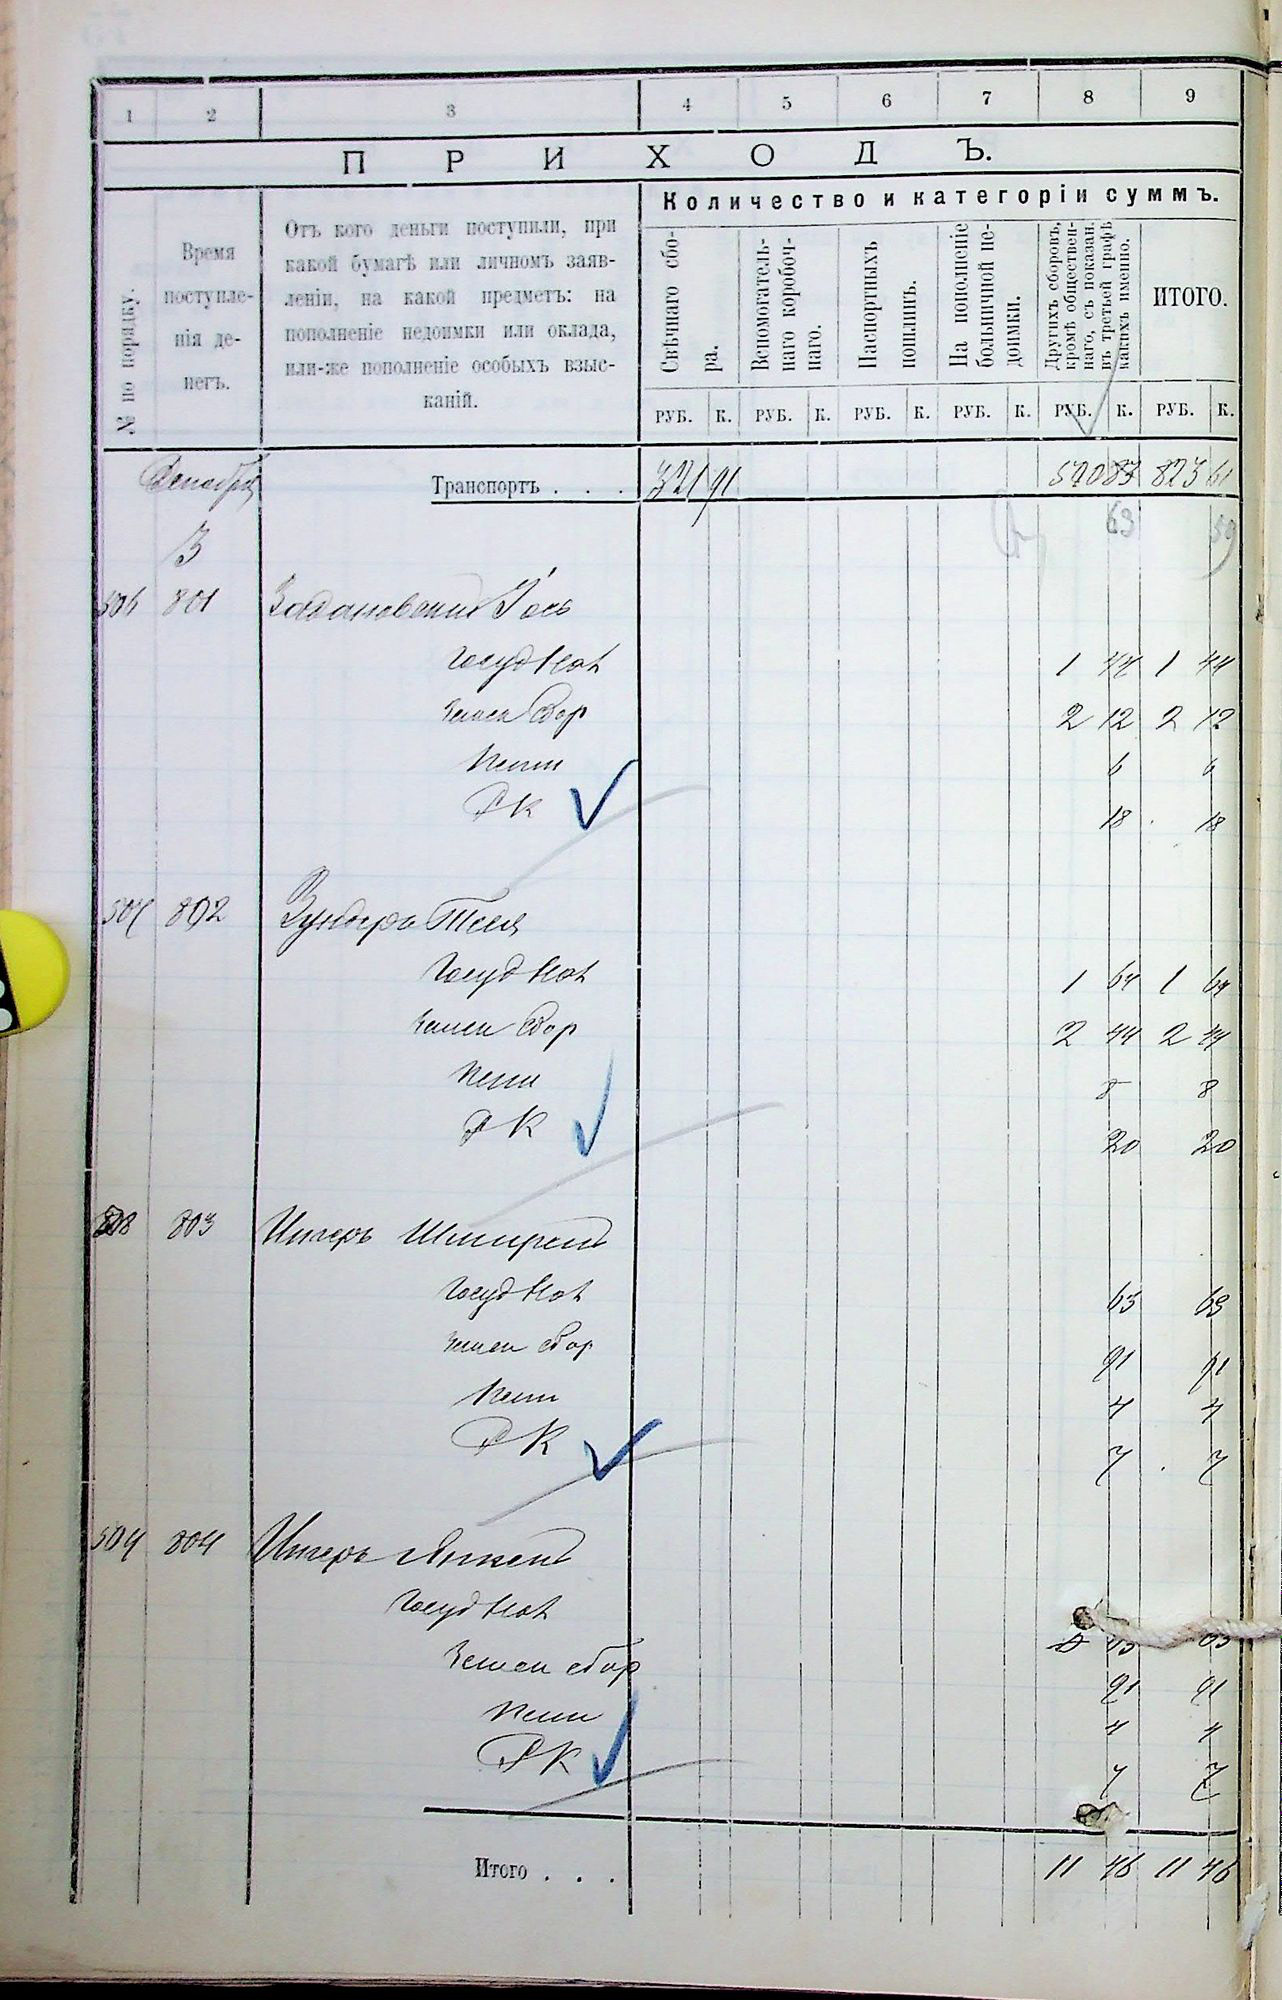 1 2 3 4 5 6 7 8 9
ПРИХОДЪ.
№ по порядку.
Время поступле-
нія де-
негъ.
Отъ кого деньги поступили, при
какой бумагѣ или личномъ заяв-
леніи, на какой предметъ: на
пополненіе недоимки или оклада,
или-же пополненіе особыхъ взыс-
каній.
Количество и категоріи суммъ.
Свѣчнаго сбо-
ра.
Вспомогатель-
наго коробоч-
наго.
Паспортныхъ
пошлинъ.
На пополненіе
больничной не-
доимки.
Другихъ сборовъ,
кромѣ обществен-
наго, съ показан.
въ третьей графѣ
какихъ именно.
ИТОГО.
РУБ. К. РУБ. К. РУБ. К. РУБ. К. РУБ. К. РУБ. К.
Декабря Транспортъ . . . 321 91 823 61
63 59
3
506 801
Госуд Нал 1 44 1 44
Земск Сбор 2 12 2 12
Пени 6 6
РК 18 18
507 802 Вундеръ
Госуд Нал 1 64 1 64
Земск Сбор 2 44 2 44
Пени 8 8
РК 20 20
508 803 Ингеръ
Госуд Нал 63 63
Земск сбор 91 91
Пени 4 4
РК 7 7
509 804 Ингеръ
Госуд Нал 63 63
Земск сбор 91 91
Пени 4 4
РК 7 7
Итого . . . 11 46 11 46